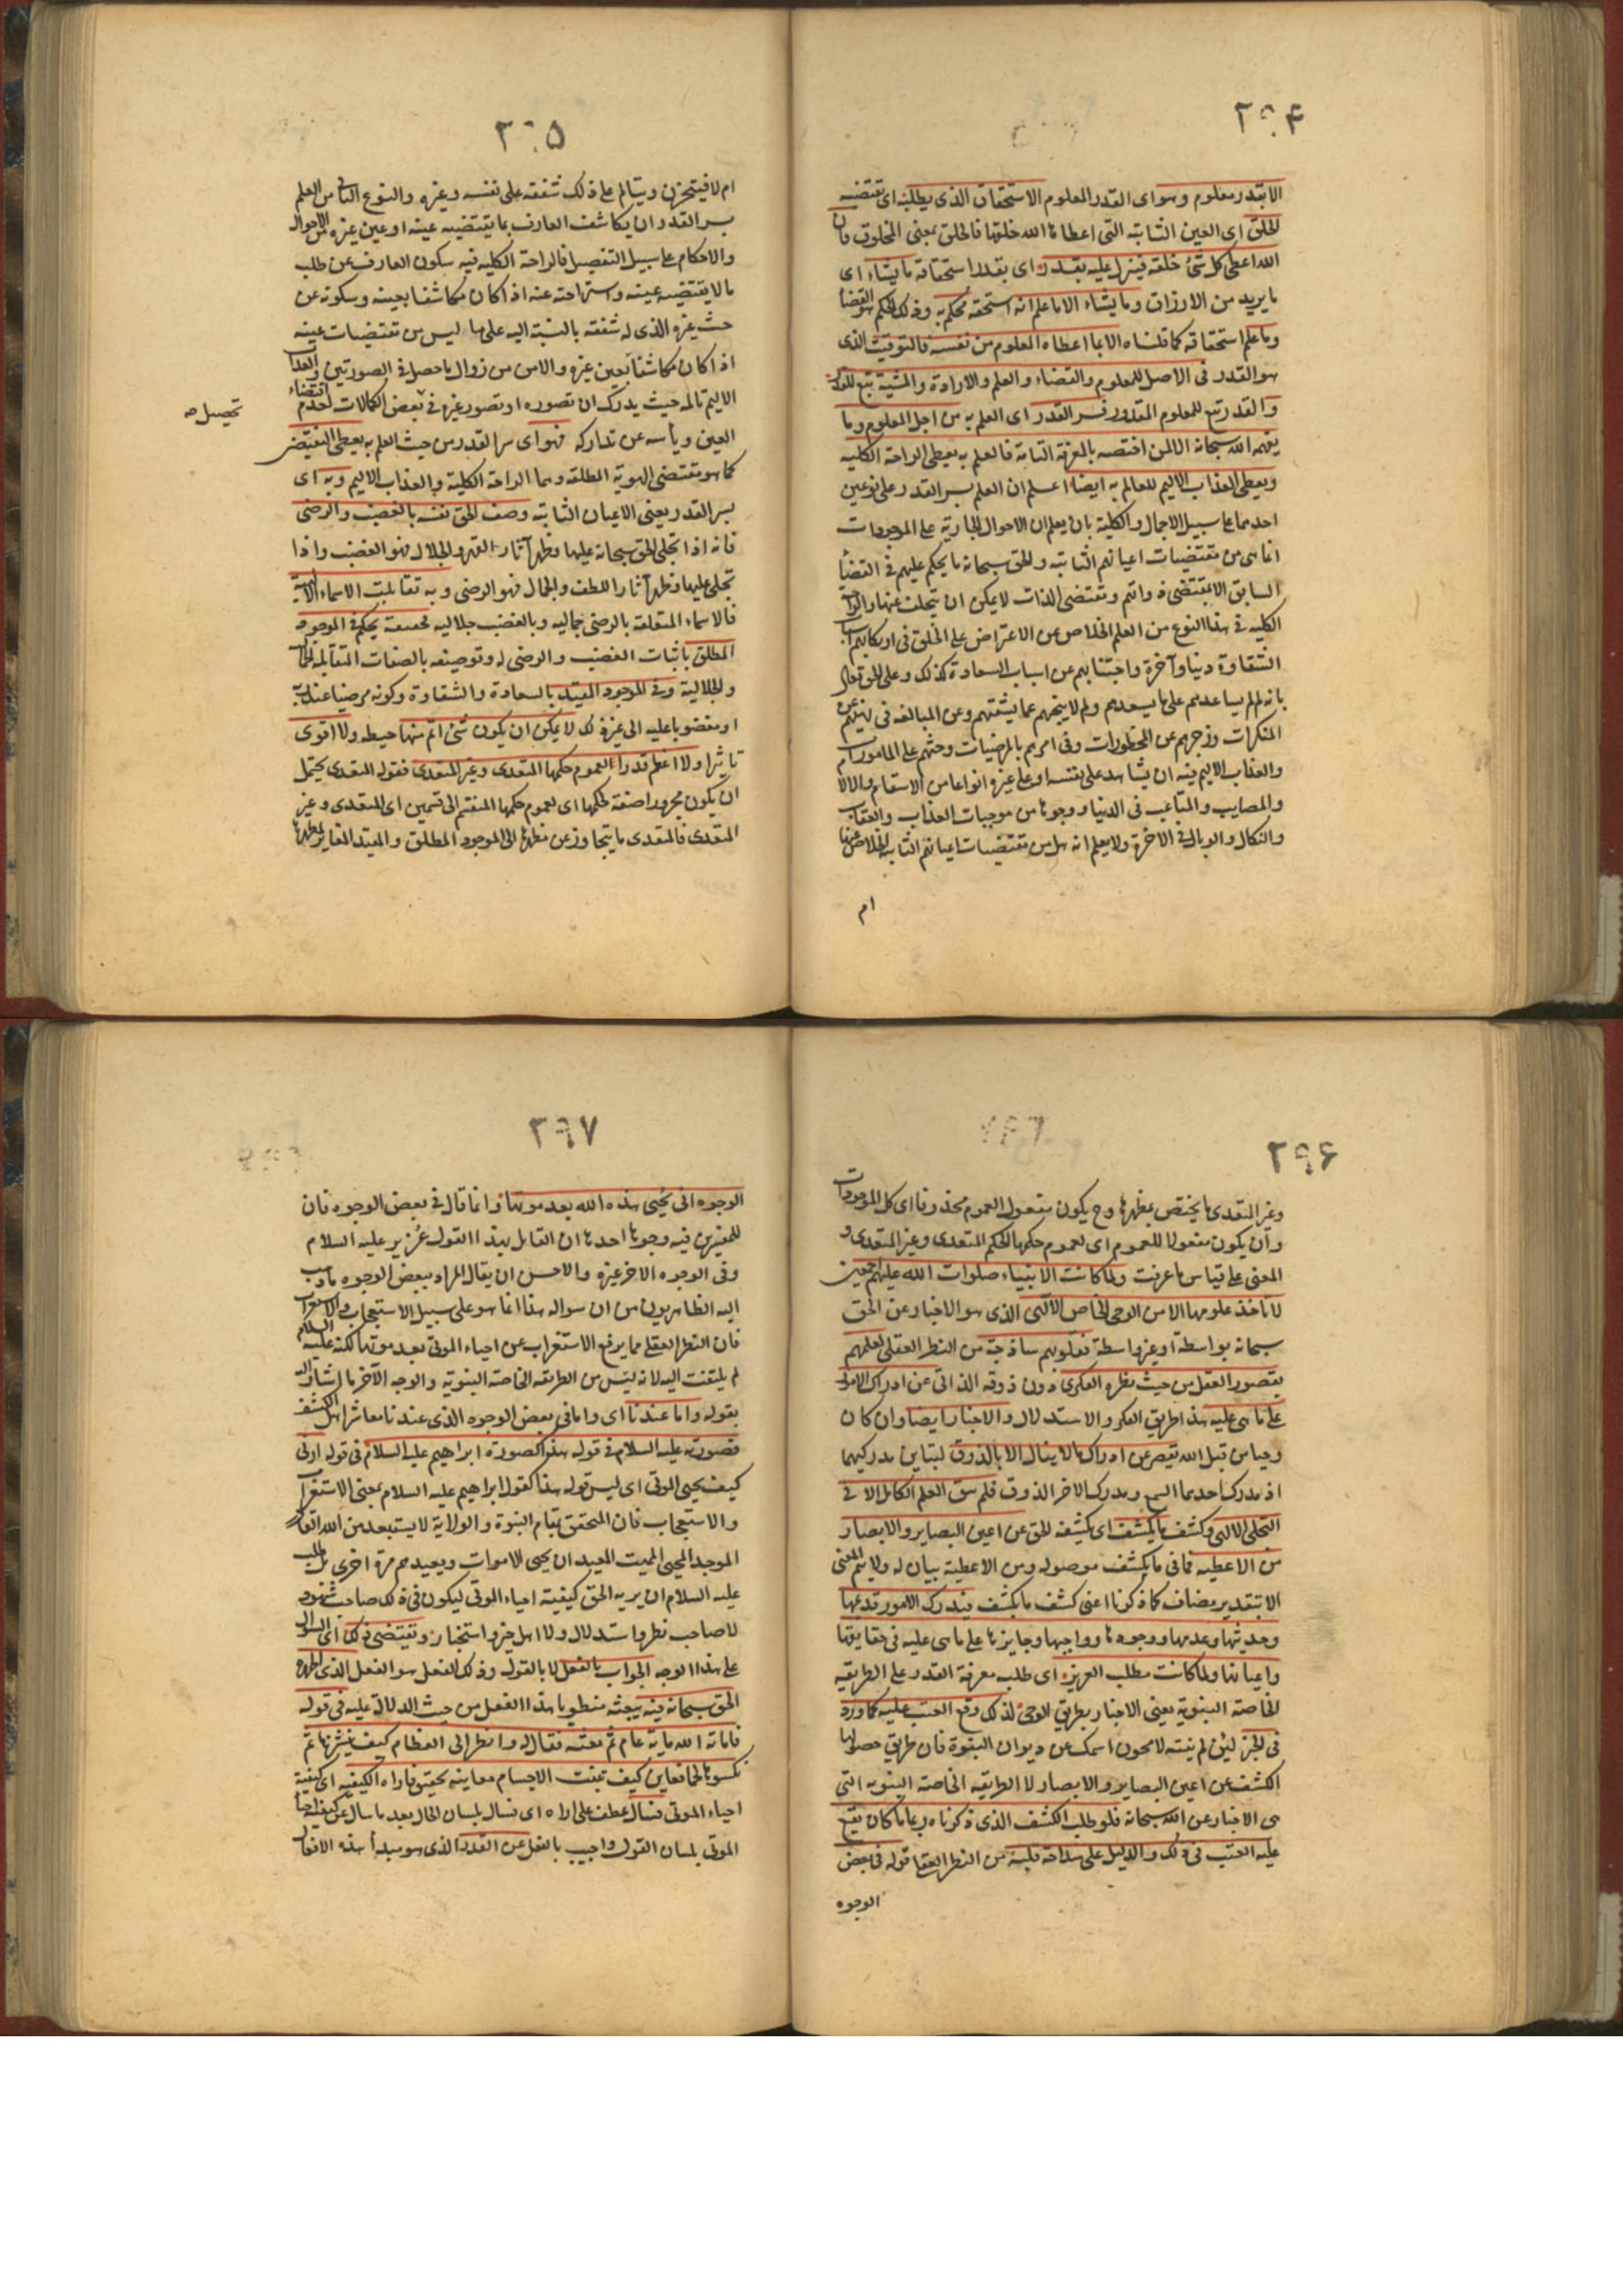 ٢٩۴
الا بقدر معلوم وهو اى القدر المعلوم الاستحقاق الذى يطلبه اى تقتضيه
الخلق اى العين الثابتة التى اعطاها الله خلقها فالخلق بمعنى المخلوق فان
الله اعطى كل شئ خلقه فينزل عليه بقدر اى بقدر استحقاقه ما يشاء اى
ما يريد من الارزاق وما يشاء الا ما علم انه استحقه فحكم به وذلك الحكم هو القضاء
وما علم استحقاقه كما قلناه الا بما اعطاه المعلوم من نفسه فالتوقيت الذى
هو القدر فى الاصل للمعلوم والقضاء والعلم والارادة والمشية تبع للقدر
والقدر تبع للمعلوم المقدور فسر القدر اى العلم به من اجل المعلوم وما
يفهمه الله سبحانه الا لمن اختصه بالمعرفة التامة فالعلم به يعطى الراحة الكلية
ويعطى العذاب الاليم للعالم به ايضا اعلم ان العلم بسر القدر على نوعين
احدهما على سبيل الاجمال والكلية بان يعلم ان الاحوال الجارية على الموجودات
انما هى من مقتضيات اعيانهم الثابتة والحق سبحانه ما يحكم عليهم فى القضاء
السابق الا بمقتضى ذواتهم ومقتضى الذات لا يمكن ان يتخلف عنها والراحة
الكلية فى هذا النوع من العلم الخلاص عن الاعتراض على الخلق فى ارتكابهم اسباب
الشقاوة دنيا وآخرة واجتنابهم عن اسباب السعادة كذلك وعلى الحق تعالى
بانه لم لم يساعدهم على ما يسعدهم ولم لا ينجهم عما يشقهم وعن المبالغة فى نهيهم عن
المنكرات وزجرهم عن المحظورات وفى امرهم بالمرضيات وحثهم على المامورات
والعذاب الاليم فيه ان يشاهد على نفسه او على غيره انواعا من الاسقام والالام
والمصايب والمتاعب فى الدنيا ووجوها من موجبات العذاب والعقاب
والنكال والوبال فى الاخرة ولا يعلم انه هل من مقتضيات اعيانهم الثابتة الخلاص عنها
ام
٢٩۵
ام لا فيتحزن ويتالم على ذلك شفقة على نفسه وغيره والنوع الثانى من العلم
بسر القدر ان يكاشف العارف بما يقتضيه عينه او عين غيره من الاحوال
والاحكام على سبيل التفصيل فالراحة الكلية فيه سكون العارف عن طلب
ما لا يقتضيه عينه واستراحته عنه اذا كان مكاشفا بعينه وسكوته عن
حث غيره الذى له شفقة بالنسبة اليه على ما ليس من مقتضيات عينه
اذا كان مكاشفا بعين غيره والامن من زوال ما حصل فى الصورتين والعذاب
الاليم تالمه حيث يدرك ان تصوره او تصور غيره فى بعض الكمالات لعدم اقتضاء
تحصيل صح
العين ويأسه عن تداركه فهو اى سر القدر من حيث العلم به يعطى النقيضين
كما هو مقتضى الهوية المطلقة وهما الراحة الكلية والعذاب الاليم وبه اى
بسر القدر يعنى الاعيان الثابتة وصف الحق نفسه بالغضب والرضى
فانه اذا تجلى الحق سبحانه عليها وظهر آثار القهر والجلال فهو الغضب واذا
تجلى عليها وظهر آثار اللطف والجمال فهو الرضى وبه تقابلت الاسماء الالهية
فالاسماء المتعلقة بالرضى جمالية وبالغضب جلالية فحقيقة يحكم فى الموجود
المطلق باثبات الغضب والرضى له وتوصيفه بالصفات المتقابلة الجمالية
والجلالية وفى الموجود المقيد بالسعادة والشقاوة وكونه مرضيا عند ربه
او مغضوبا عليه الى غير ذلك لا يمكن ان يكون شئ اتم منها حيطة ولا اقوى
تاثيرا ولا اعظم قدرا لعموم حكمها المتعدى وغير المتعدى فقوله المتعدى يحتمل
ان يكون مجرورا صفة لحكمها اى لعموم حكمها المنقسم الى قسمين اى المتعدى وغير
المتعدى فالمتعدى ما يتجاوز عن مظهرها الى الموجود المطلق والمقيد المغاير لمظهرها
٢٩۶
وغير المتعدى ما يختص بمظهرها وح يكون مفعول العموم محذوفا اى كل الموجودات
وان يكون مفعولا للعموم اى لعموم حكمها الحكم المتعدى وغير المتعدى و
المعنى على قياس ما عرفت ولما كانت الانبياء صلوات الله عليهم اجمعين
لا تاخذ علومها الا من الوحى الخاص الالهى الذى هو الاخبار عن الحق
سبحانه بواسطة او بغير واسطة فقلوبهم ساذجة من النظر العقلى لعلمهم
بقصور العقل من حيث نظره الفكرى دون ذوقه الذاتى عن ادراك الامور
على ما هى عليه هذا طريق الفكر والاستدلال والاخبار ايضا وان كان
وحيا من قبل الله يقصر عن ادراك ما لا ينال الا بالذوق لتباين مدركيهما
اذ مدرك احدهما السمع ومدرك الاخر الذوق فلم يبق العلم الكامل الا فى
التجلى الالهى وكشف ما يكشف اى يكشفه الحق عن اعين البصاير والابصار
من الاغطية فما فى ما يكشف موصولة ومن الاغطية بيان له ولا يتم المعنى
الا بتقدير مضاف كما ذكرنا اعنى كشف ما يكشف فيدرك الامور قديمها
وحديثها وعدمها ووجودها وواجبها وجايزها على ما هى عليه فى حقايقها
واعيانها ولما كانت مطلب العزير اى طلب معرفة القدر على الطريقة
الخاصة النبوية يعنى الاخبار بطريق الوحى لذلك وقع العتب عليه كما ورد
فى الخبر لئن لم تنته لامحون اسمك عن ديوان النبوة فان طريق حصولها
الكشف عن اعين البصاير والابصار لا الطريقة الخاصة النبوية التى
هى الاخبار عن الله سبحانه فلو طلب الكشف الذى ذكرناه ربما ما كان يقع
عليه العتب فى ذلك والدليل على سذاجة قلبه من النظر العقلى قوله فى بعض
الوجوه
٢٩٧
الوجوه انى يحيى هذه الله بعد موتها وانما قال فى بعض الوجوه فان
للمفسرين فيه وجوها احدها ان القايل بهذا القول عزير عليه السلام
وفى الوجوه الاخر غيره والاحسن ان يقال المراد ببعض الوجوه ما ذهب
اليه الظاهريون من ان سواله هذا انما هو على سبيل الاستعجاب والاستغراب
فان النظر العقلى مما يرفع الاستغراب عن احياء الموتى بعد موتها لكنه عليه السلام
لم يلتفت اليه لانه ليس من الطريقة الخاصة النبوية والوجه الآخر ما اشار اليه
بقوله واما عندنا اى واما فى بعض الوجوه الذى عندنا معاشر اهل الكشف
فصورته عليه السلام فى قوله هذا كصورة ابراهيم عليه السلام فى قوله ارنى
كيف يحيى الموتى اى ليس قوله هذا كقول ابراهيم عليه السلام بمعنى الاستغراب
والاستعجاب فان المتحقق بمقام النبوة والولاية لا يستبعد من الله القادر
الموجد المحيى المميت المعيد ان يحيى الاموات ويعيدهم مرة اخرى بل طلب
عليه السلام ان يريه الحق كيفية احياء الموتى ليكون فى ذلك صاحب شهود
لا صاحب نظر واستدلال ولا اهل خبر واستخبار ويقتضى ذلك اى السوال
على هذا الوجه الجواب بالفعل لا بالقول وذلك الفعل هو الفعل الذى اظهره
الحق سبحانه فيه ببعثه منطويا هذا الفعل من حيث الدلالة عليه فى قوله
فاماته الله ماية عام ثم بعثه فقال له وانظر الى العظام كيف ننشزها ثم
نكسوها لحما فعاين كيف تنبت الاجسام معاينة تحقيق فاراه الكيفية اى كيفية
احياء الموتى فسال عطف على اراه اى فسال بلسان الحال بعد ما سال عن كيفية احياء
الموتى بلسان القول واجيب بالفعل عن القدر الذى هو مبدأ هذه الافعال